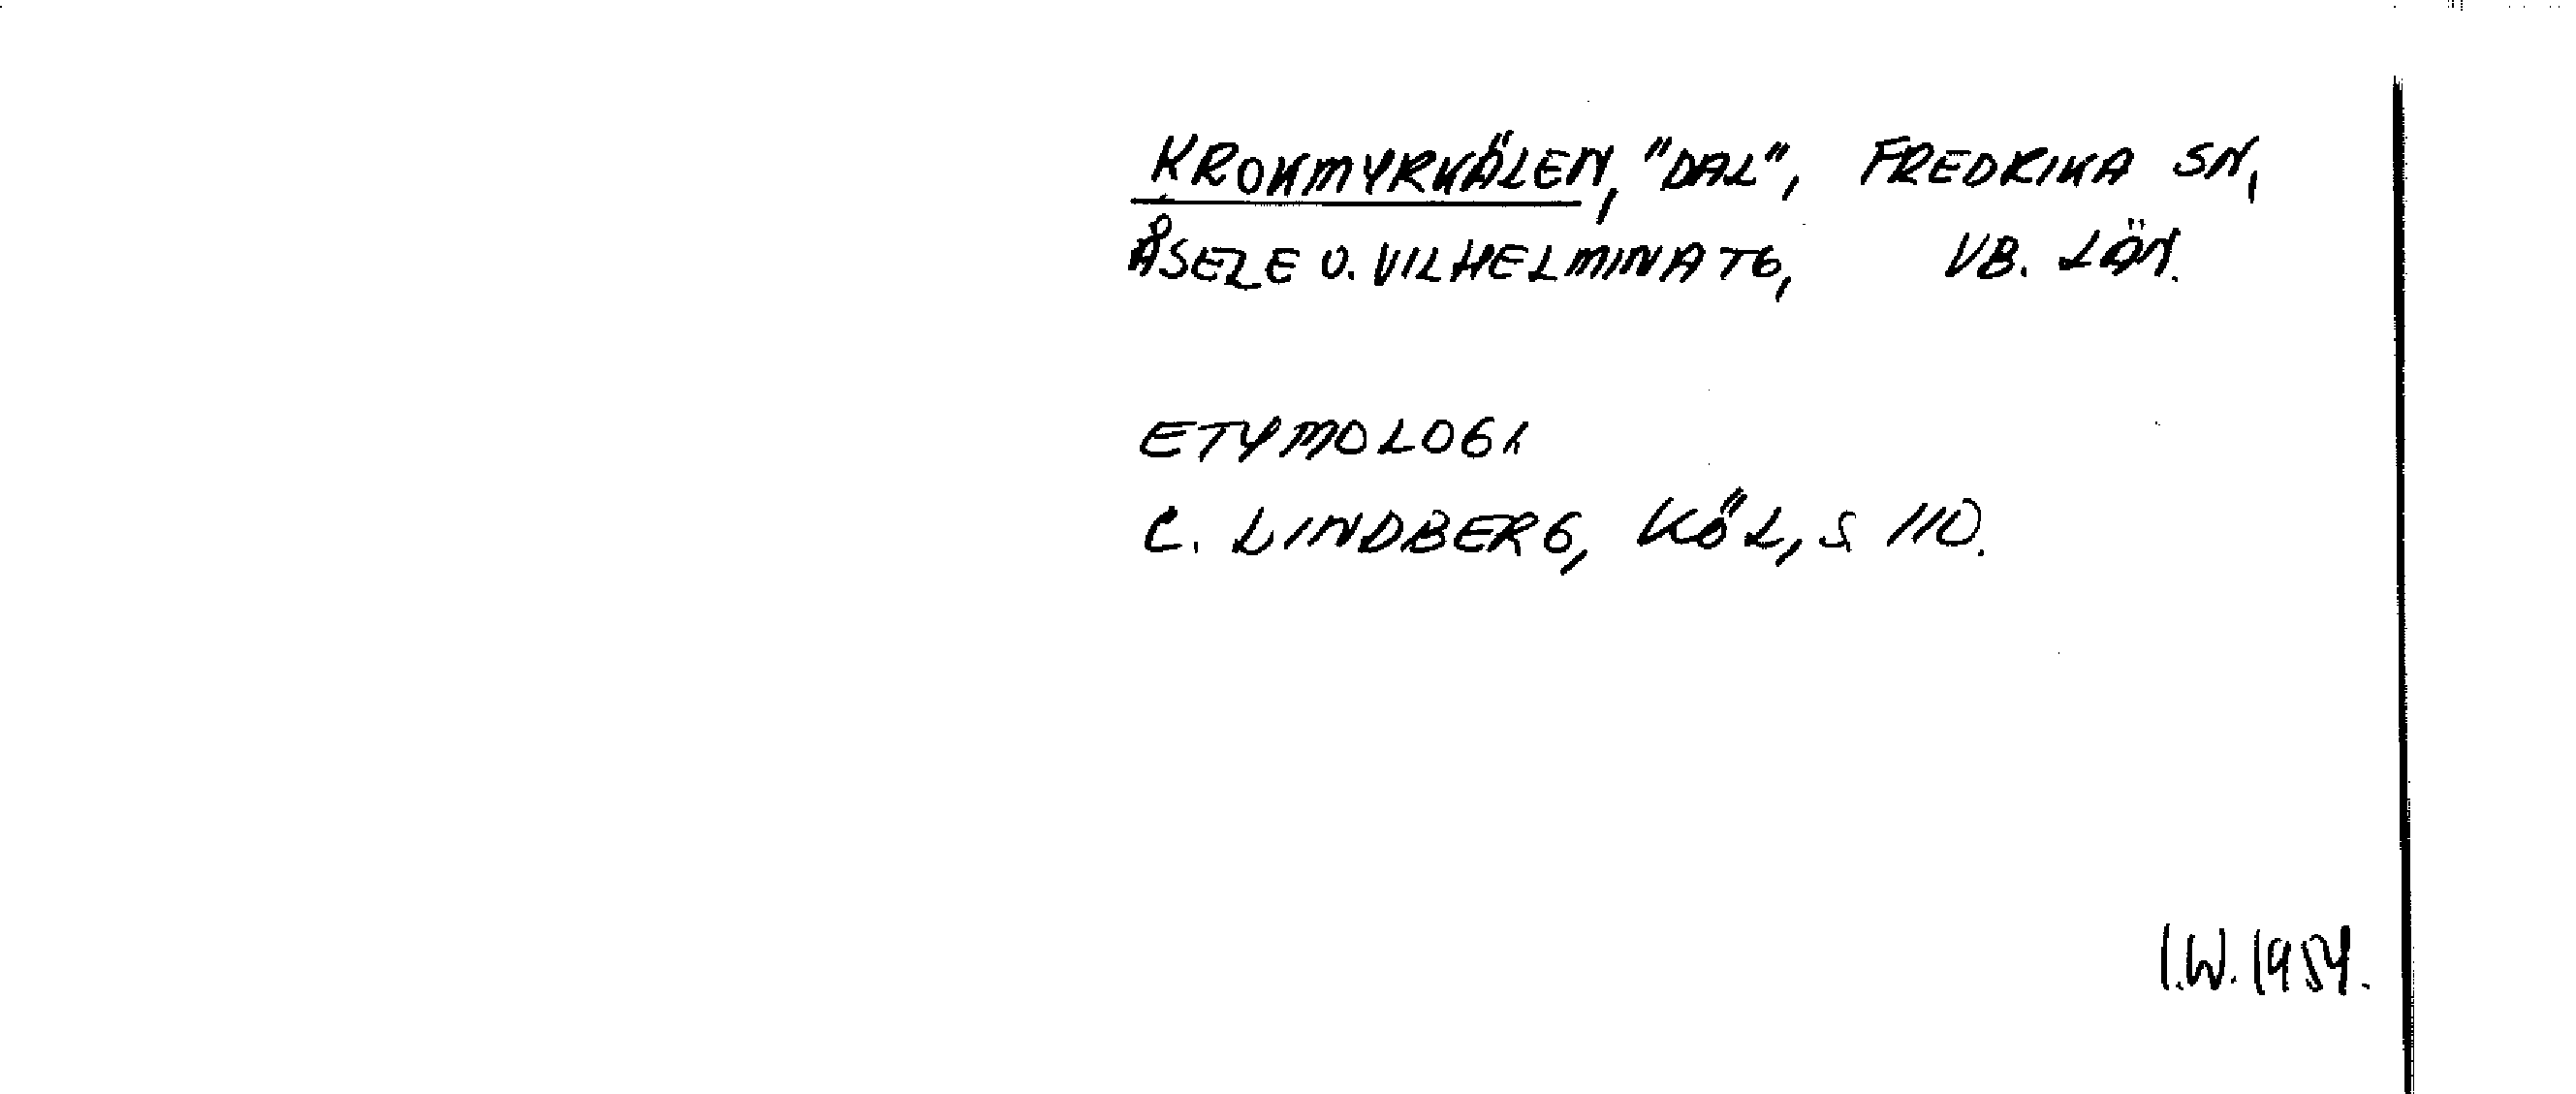 KROKMYRKÄLEN, "DAL", FREDRIKA SN,
ÅSELE O. VILHELMINA TG, VB. LÄN.
ETYMOLOGI
C. LINDBERG, KÖL, S 110.
I.W. 1954.